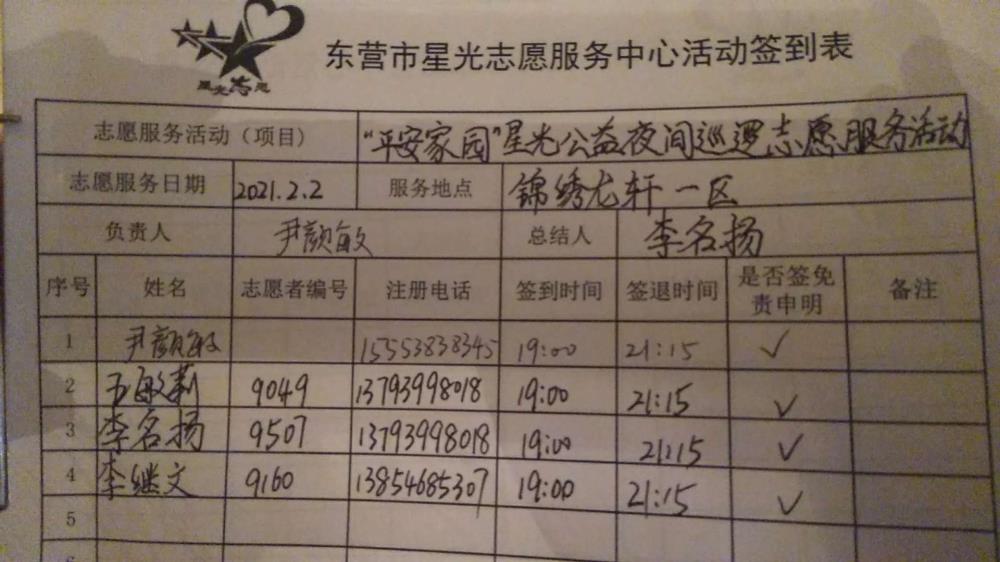 星光志愿
东营市星光志愿服务中心活动签到表
志愿服务活动（项目） “平安家园”星光公益夜间巡逻志愿服务活动
志愿服务日期 2021.2.2 服务地点 锦绣龙轩一区
负责人 尹颜敏 总结人 李名扬
序号 姓名 志愿者编号 注册电话 签到时间 签退时间 是否签免责申明 备注
1 尹颜敏 15553838345 19:00 21:15 ✓
2 王敏莉 9049 13793998018 19:00 21:15 ✓
3 李名扬 9507 13793998018 19:00 21:15 ✓
4 李继文 9160 13854685307 19:00 21:15 ✓
5